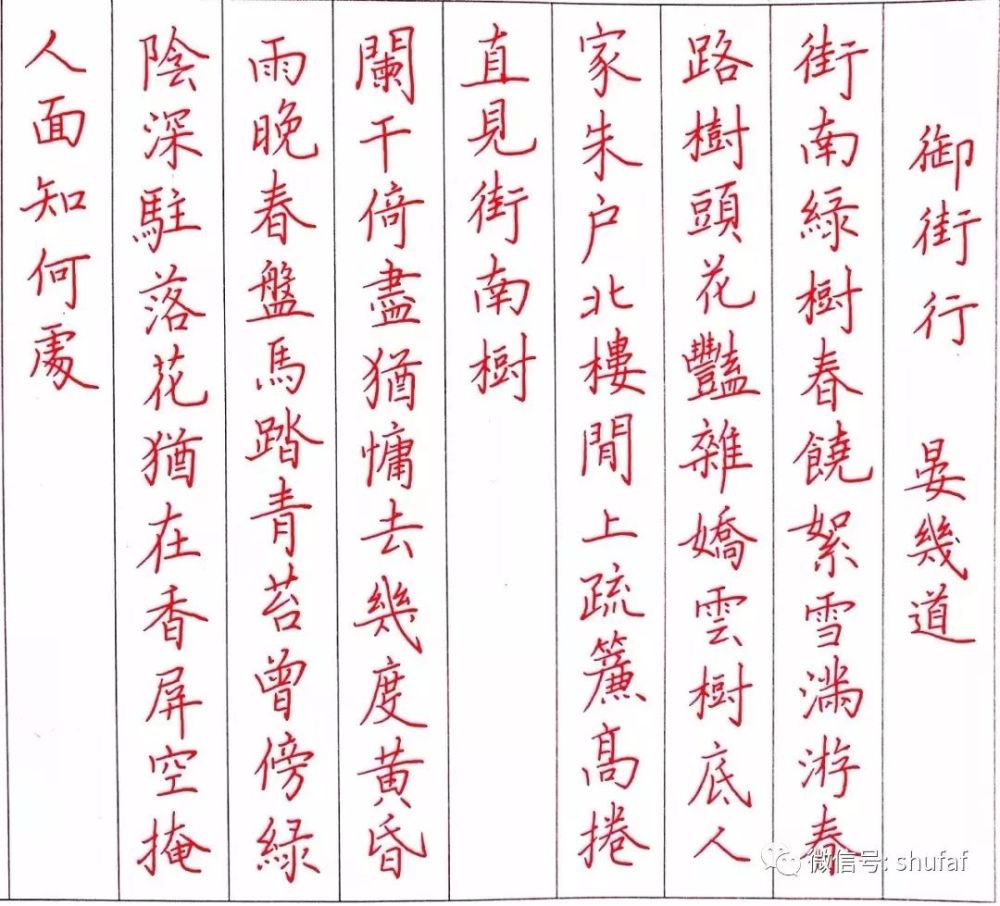 御街行 晏幾道
街南綠樹春饒絮雪滿游春
路樹頭花豔雜嬌雲樹底人
家朱户北樓閒上疏簾高捲
直見街南樹
闌干倚盡猶慵去幾度黃昏
雨晚春盤馬踏青苔曾傍綠
陰深駐落花猶在香屏空掩
人面知何處
微信号: shufaf